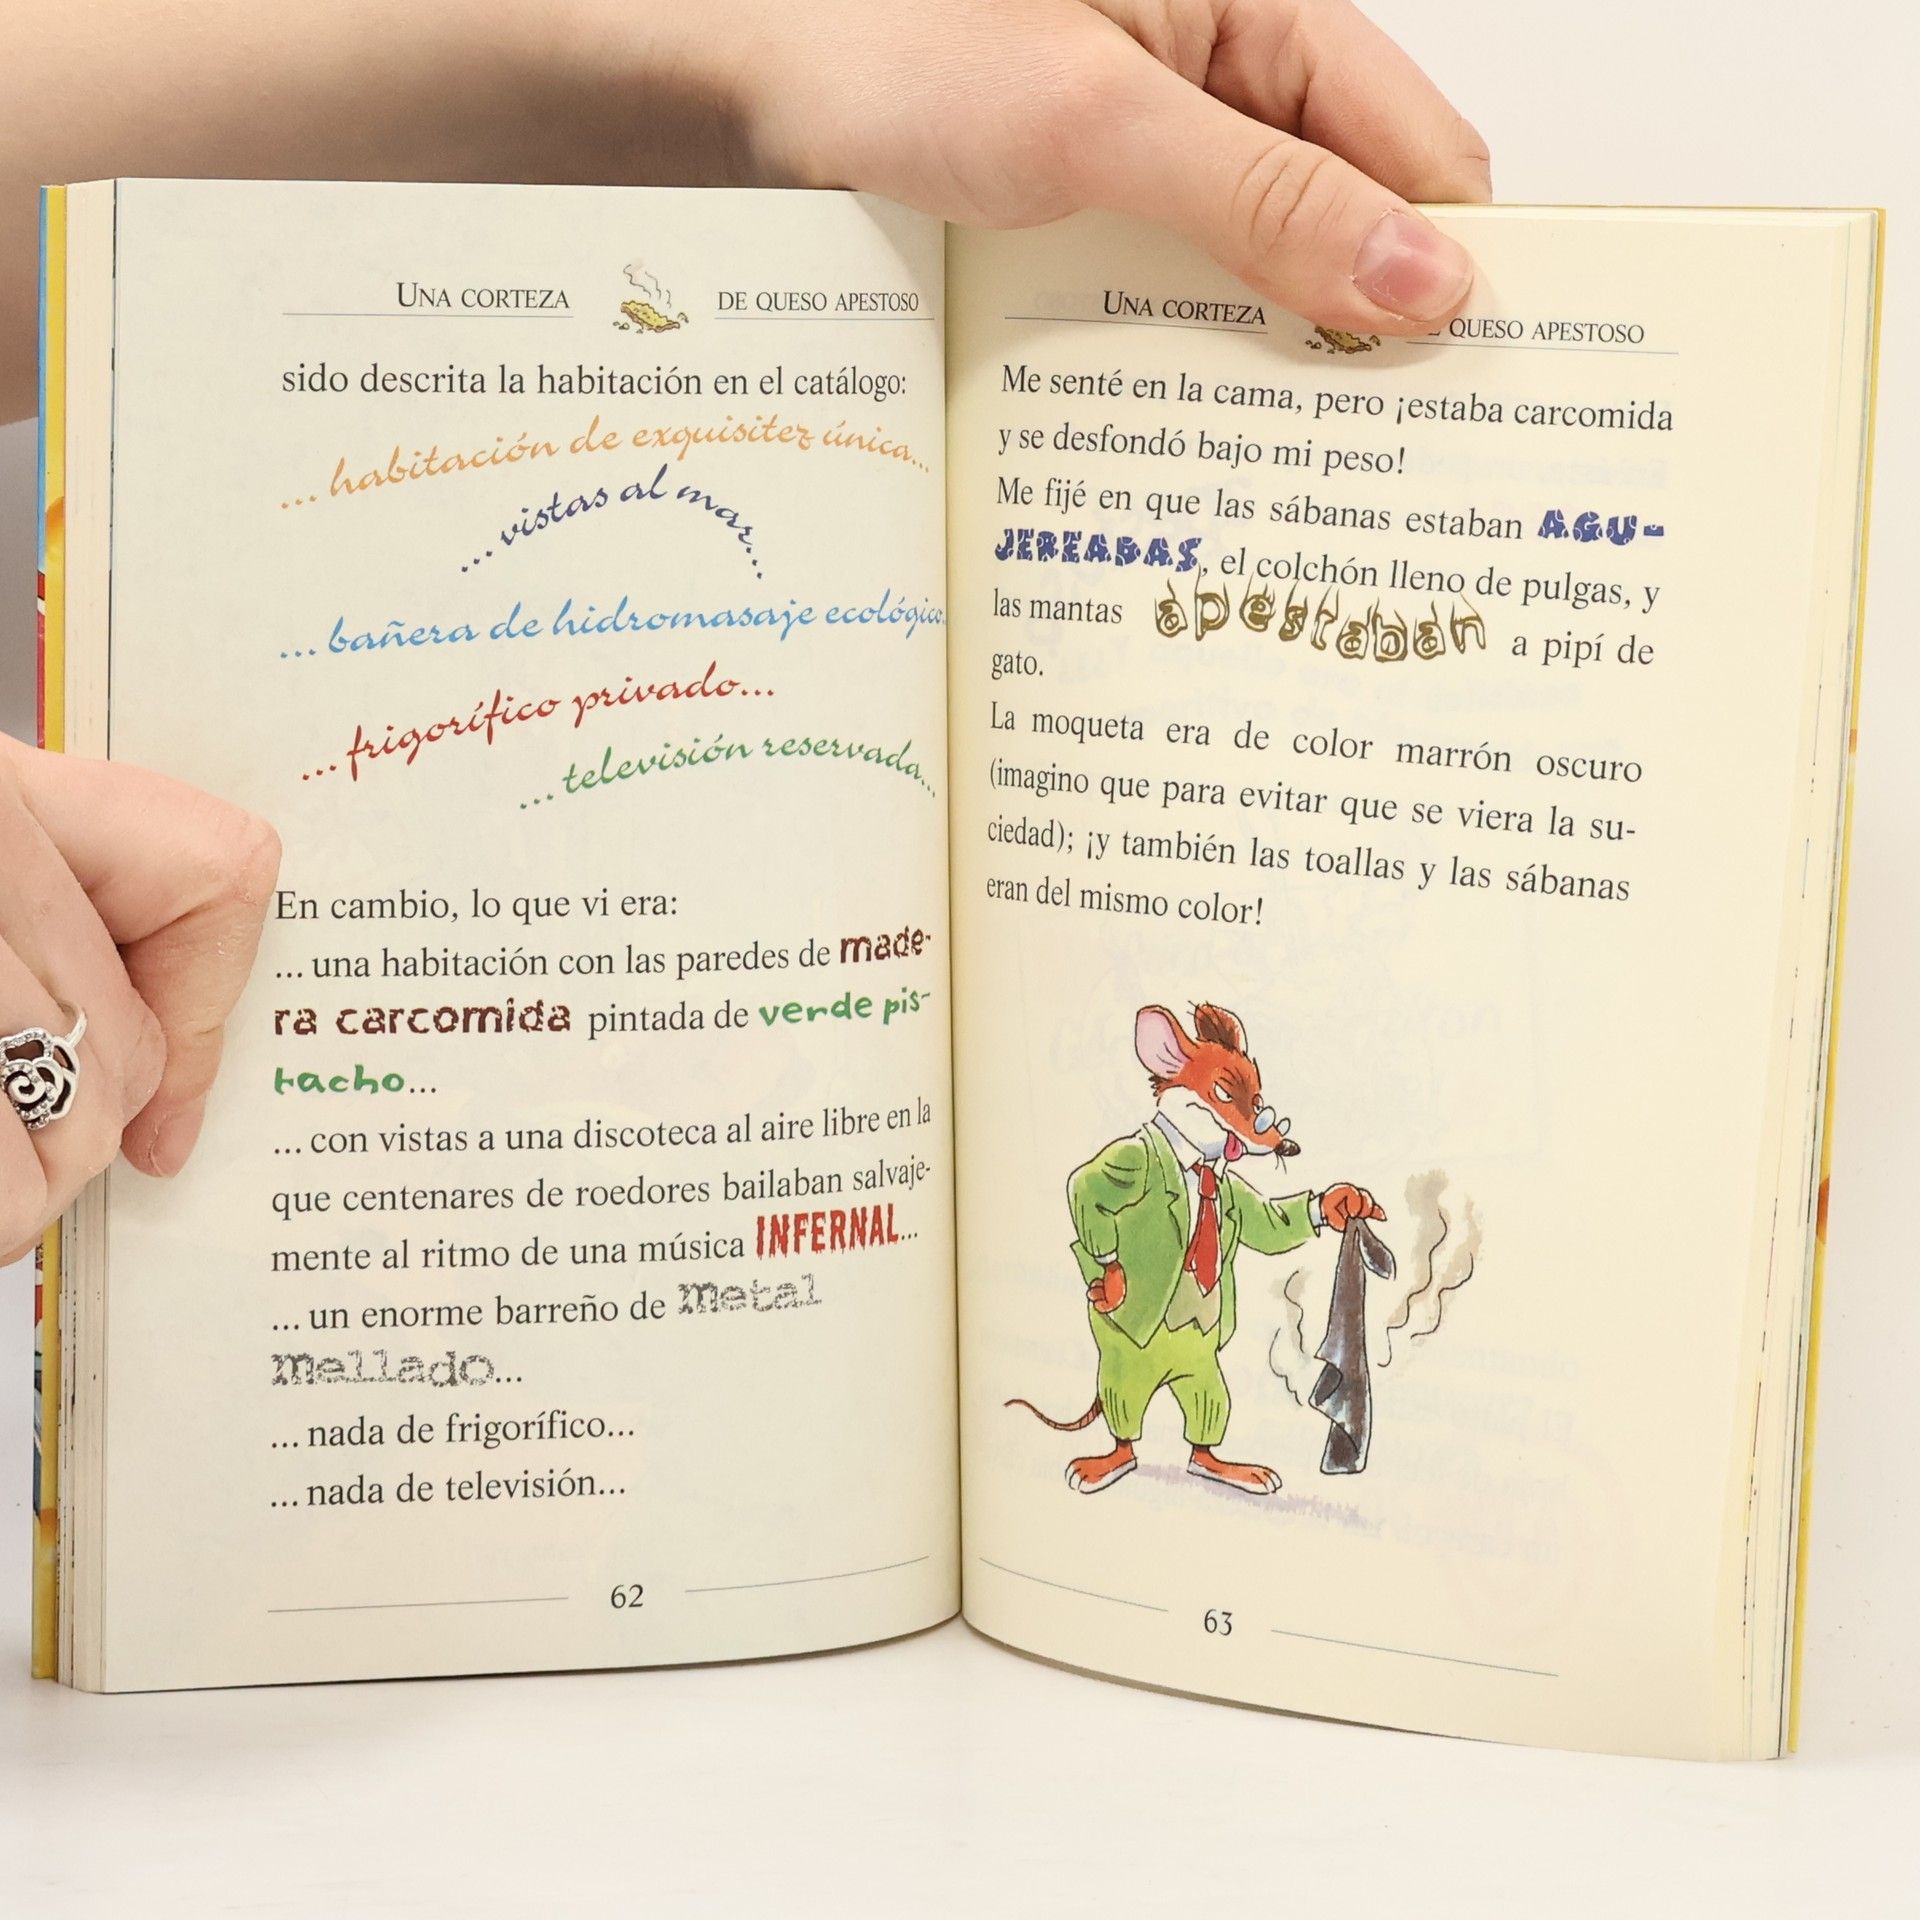 UNA CORTEZA DE QUESO APESTOSO
sido descrita la habitación en el catálogo:
... habitación de exquisitez única...
... vistas al mar...
... bañera de hidromasaje ecológico.
... frigorífico privado...
... televisión reservada...
En cambio, lo que vi era:
... una habitación con las paredes de made-
ra carcomida pintada de verde pis-
tacho...
... con vistas a una discoteca al aire libre en la
que centenares de roedores bailaban salvaje-
mente al ritmo de una música INFERNAL...
... un enorme barreño de metal
mellado...
... nada de frigorífico...
... nada de televisión...
62
UNA CORTEZA QUESO APESTOSO
Me senté en la cama, pero ¡estaba carcomida
y se desfondó bajo mi peso!
Me fijé en que las sábanas estaban AGU-
JEREADAS, el colchón lleno de pulgas, y
las mantas apestaban a pipí de
gato.
La moqueta era de color marrón oscuro
(imagino que para evitar que se viera la su-
ciedad); ¡y también las toallas y las sábanas
eran del mismo color!
63